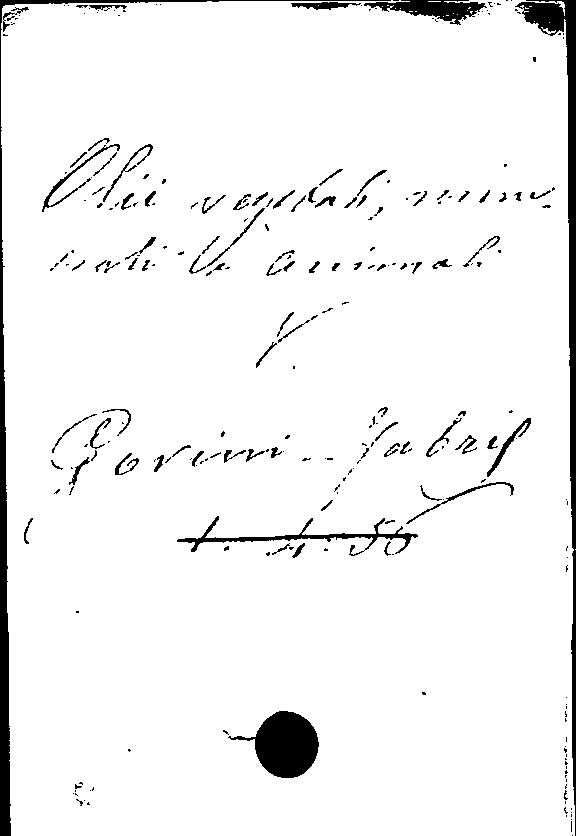 Olii vegetali, mine-
rali ed animali
V.
Gorini - Fabris
1. 4. 50